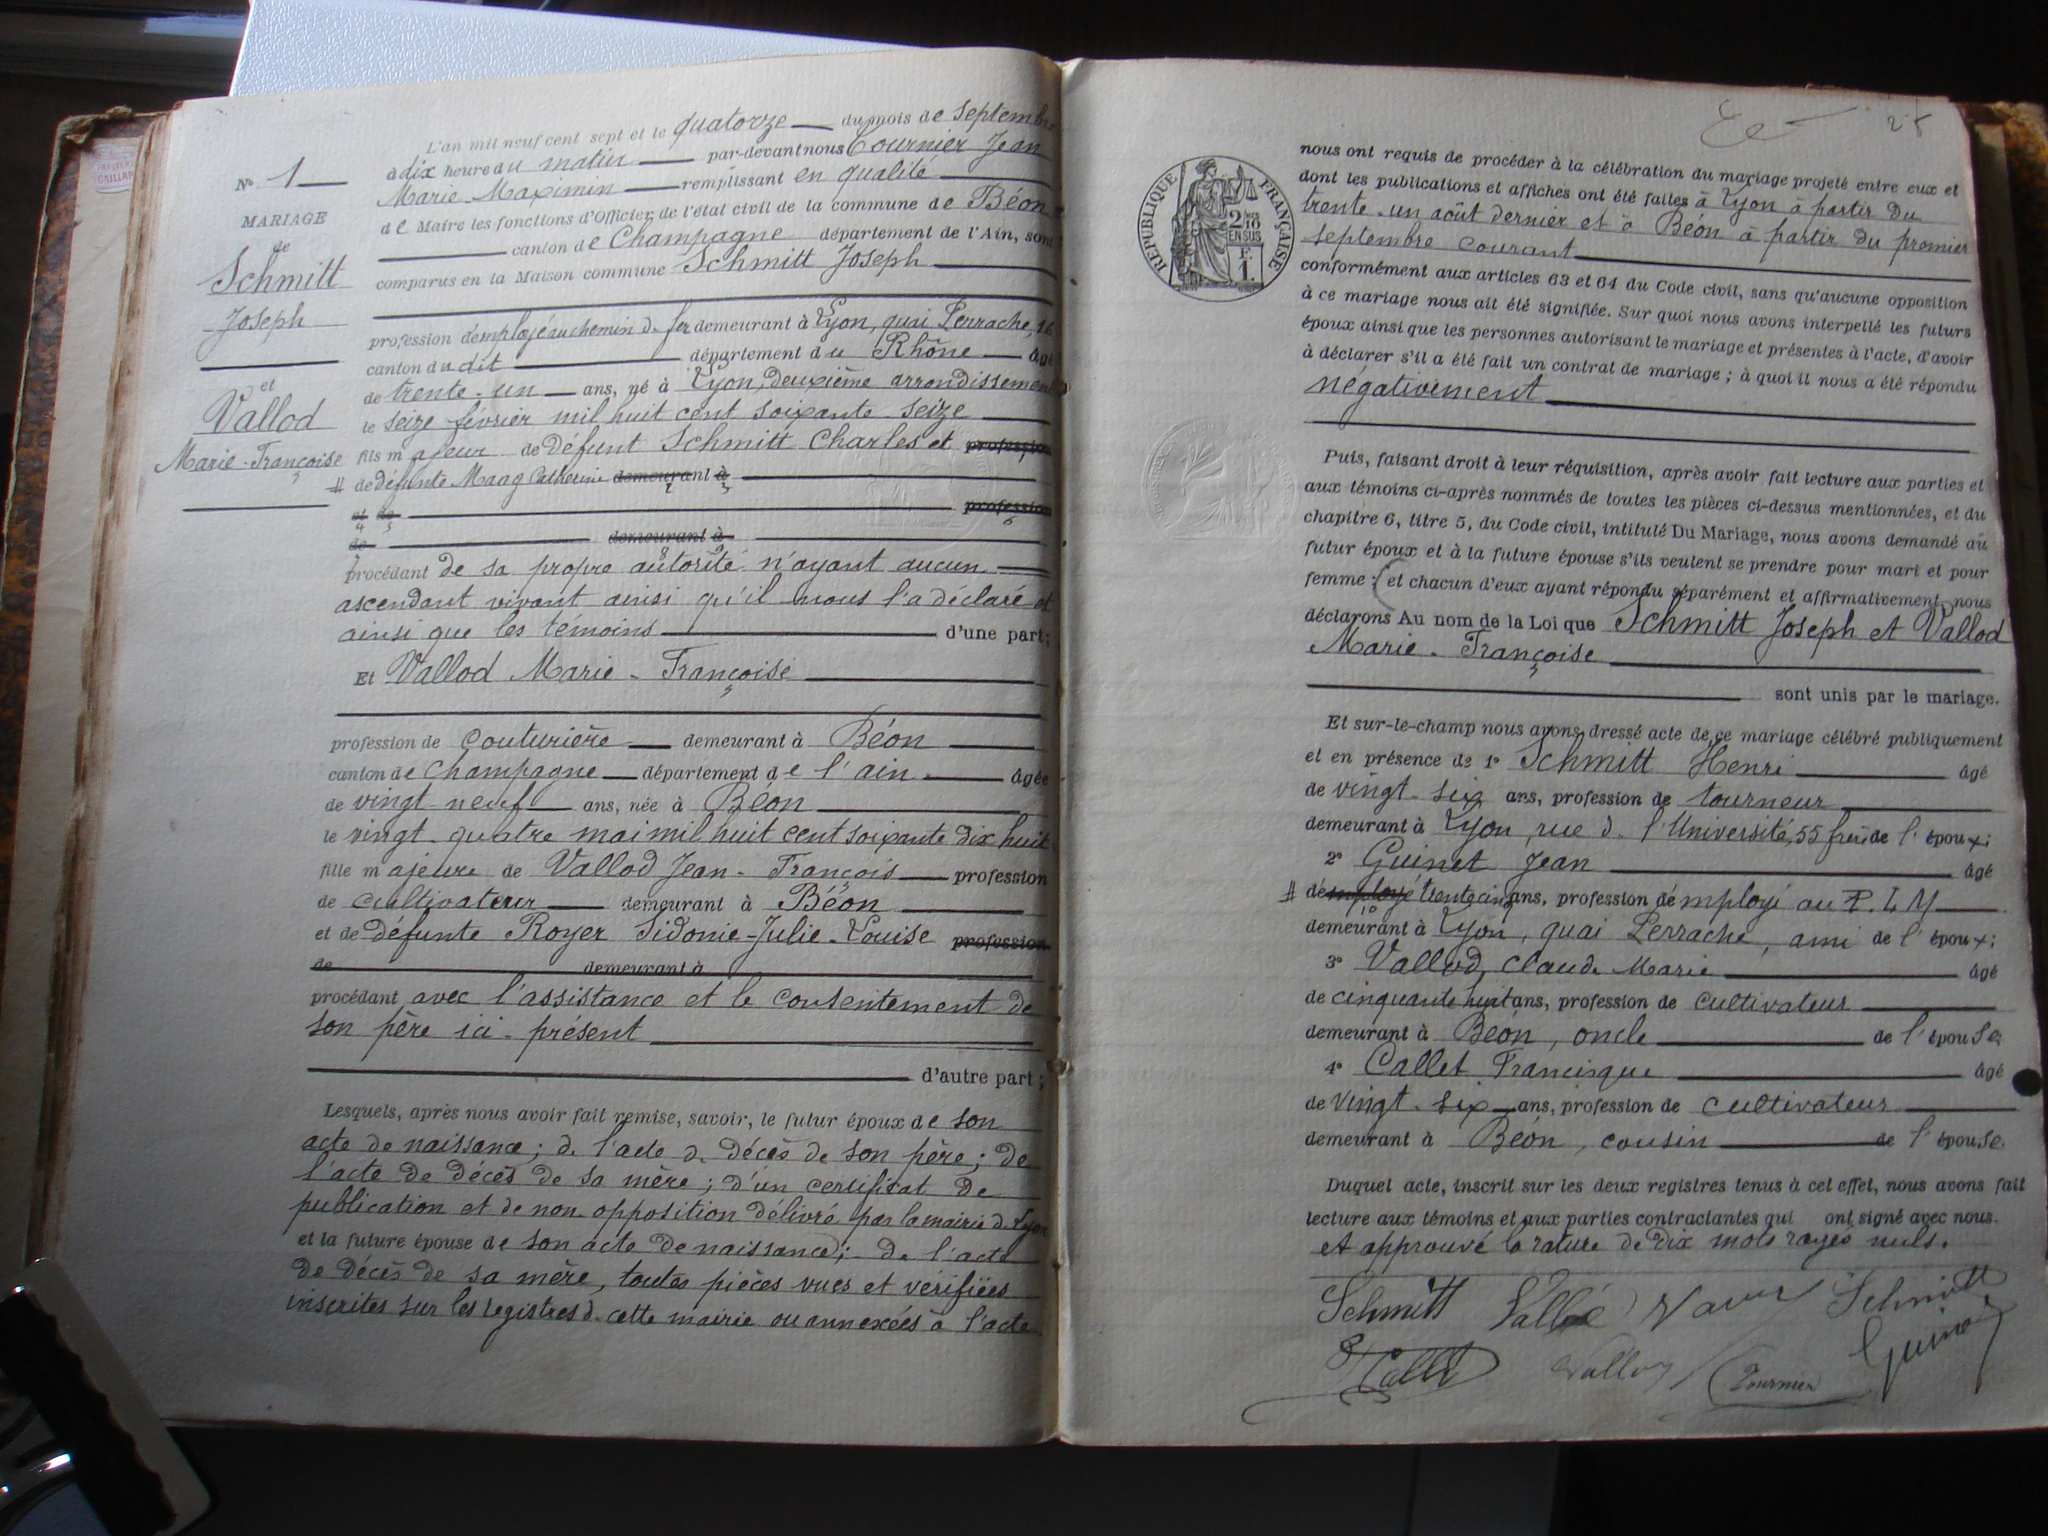 L'an mil neuf cent sept et le quatorze du mois de septembre
à dix heure du matin par-devant nous Tournier Jean
Marie Maximin remplissant en qualité
de Maire les fonctions d'Officier de l'état civil de la commune de Béon
canton de Champagne département de l'Ain, sont
comparus en la Maison commune Schmitt Joseph
profession d'employé au chemin de fer demeurant à Lyon, quai Perrache, 16
canton du dit département du Rhône âgé
de trente-un ans, né à Lyon, deuxième arrondissement
le seize février mil huit cent soixante seize
fils majeur de défunt Schmitt Charles et profession
# de défunte Maag Catherine demeurant à
et de profession
de demeurant à
procédant de sa propre autorité n'ayant aucun
ascendant vivant ainsi qu'il nous l'a déclaré et
ainsi que les témoins d'une part;
Et Vallod Marie-Françoise
profession de couturière demeurant à Béon
canton de Champagne département de l'ain âgée
de vingt-neuf ans, née à Béon
le vingt-quatre mai mil huit cent soixante dix huit
fille majeure de Vallod Jean-François profession
de cultivateur demeurant à Béon
et de défunte Royer Sidonie-Julie-Louise profession
de demeurant à
procédant avec l'assistance et le consentement de
son père ici-présent
d'autre part;
Lesquels, après nous avoir fait remise, savoir, le futur époux de son
acte de naissance; de l'acte de décès de son père; de
l'acte de décès de sa mère; d'un certificat de
publication et de non opposition délivré par la mairie de Lyon
et la future épouse de son acte de naissance; de l'acte
de décès de sa mère, toutes pièces vues et vérifiées
inscrites sur les registres de cette mairie ou annexées à l'acte
N° 1
MARIAGE
de
Schmitt
Joseph
et
Vallod
Marie-Françoise
25
RÉPUBLIQUE FRANÇAISE
2/10
EN SUS
1 F.
nous ont requis de procéder à la célébration du mariage projeté entre eux et
dont les publications et affiches ont été faites à Lyon à partir du
trente-un août dernier et à Béon à partir du premier
septembre courant
conformément aux articles 63 et 64 du Code civil, sans qu'aucune opposition
à ce mariage nous ait été signifiée. Sur quoi nous avons interpellé les futurs
époux ainsi que les personnes autorisant le mariage et présentes à l'acte, d'avoir
à déclarer s'il a été fait un contrat de mariage; à quoi il nous a été répondu
négativement
Puis, faisant droit à leur réquisition, après avoir fait lecture aux parties et
aux témoins ci-après nommés de toutes les pièces ci-dessus mentionnées, et du
chapitre 6, titre 5, du Code civil, intitulé Du Mariage, nous avons demandé au
futur époux et à la future épouse s'ils veulent se prendre pour mari et pour
femme: et chacun d'eux ayant répondu séparément et affirmativement nous
déclarons Au nom de la Loi que Schmitt Joseph et Vallod
Marie-Françoise
sont unis par le mariage.
Et sur-le-champ nous avons dressé acte de ce mariage célébré publiquement
et en présence de 1° Schmitt Henri âgé
de vingt-six ans, profession de tourneur
demeurant à Lyon, rue de l'Université, 55 frère de l'époux;
2° Guinet Jean âgé
# de employé trente cinq ans, profession d'employé au P.L.M
demeurant à Lyon, quai Perrache, ami de l'époux;
3° Vallod Claude Marie âgé
de cinquante huit ans, profession de cultivateur
demeurant à Béon, oncle de l'épouse
4° Callet Francisque âgé
de vingt-six ans, profession de cultivateur
demeurant à Béon, cousin de l'épouse.
Duquel acte, inscrit sur les deux registres tenus à cet effet, nous avons fait
lecture aux témoins et aux parties contractantes qui ont signé avec nous.
et approuvé la rature de dix mots rayés nuls.
Schmitt Schmitt
Callet Tournier Guinet